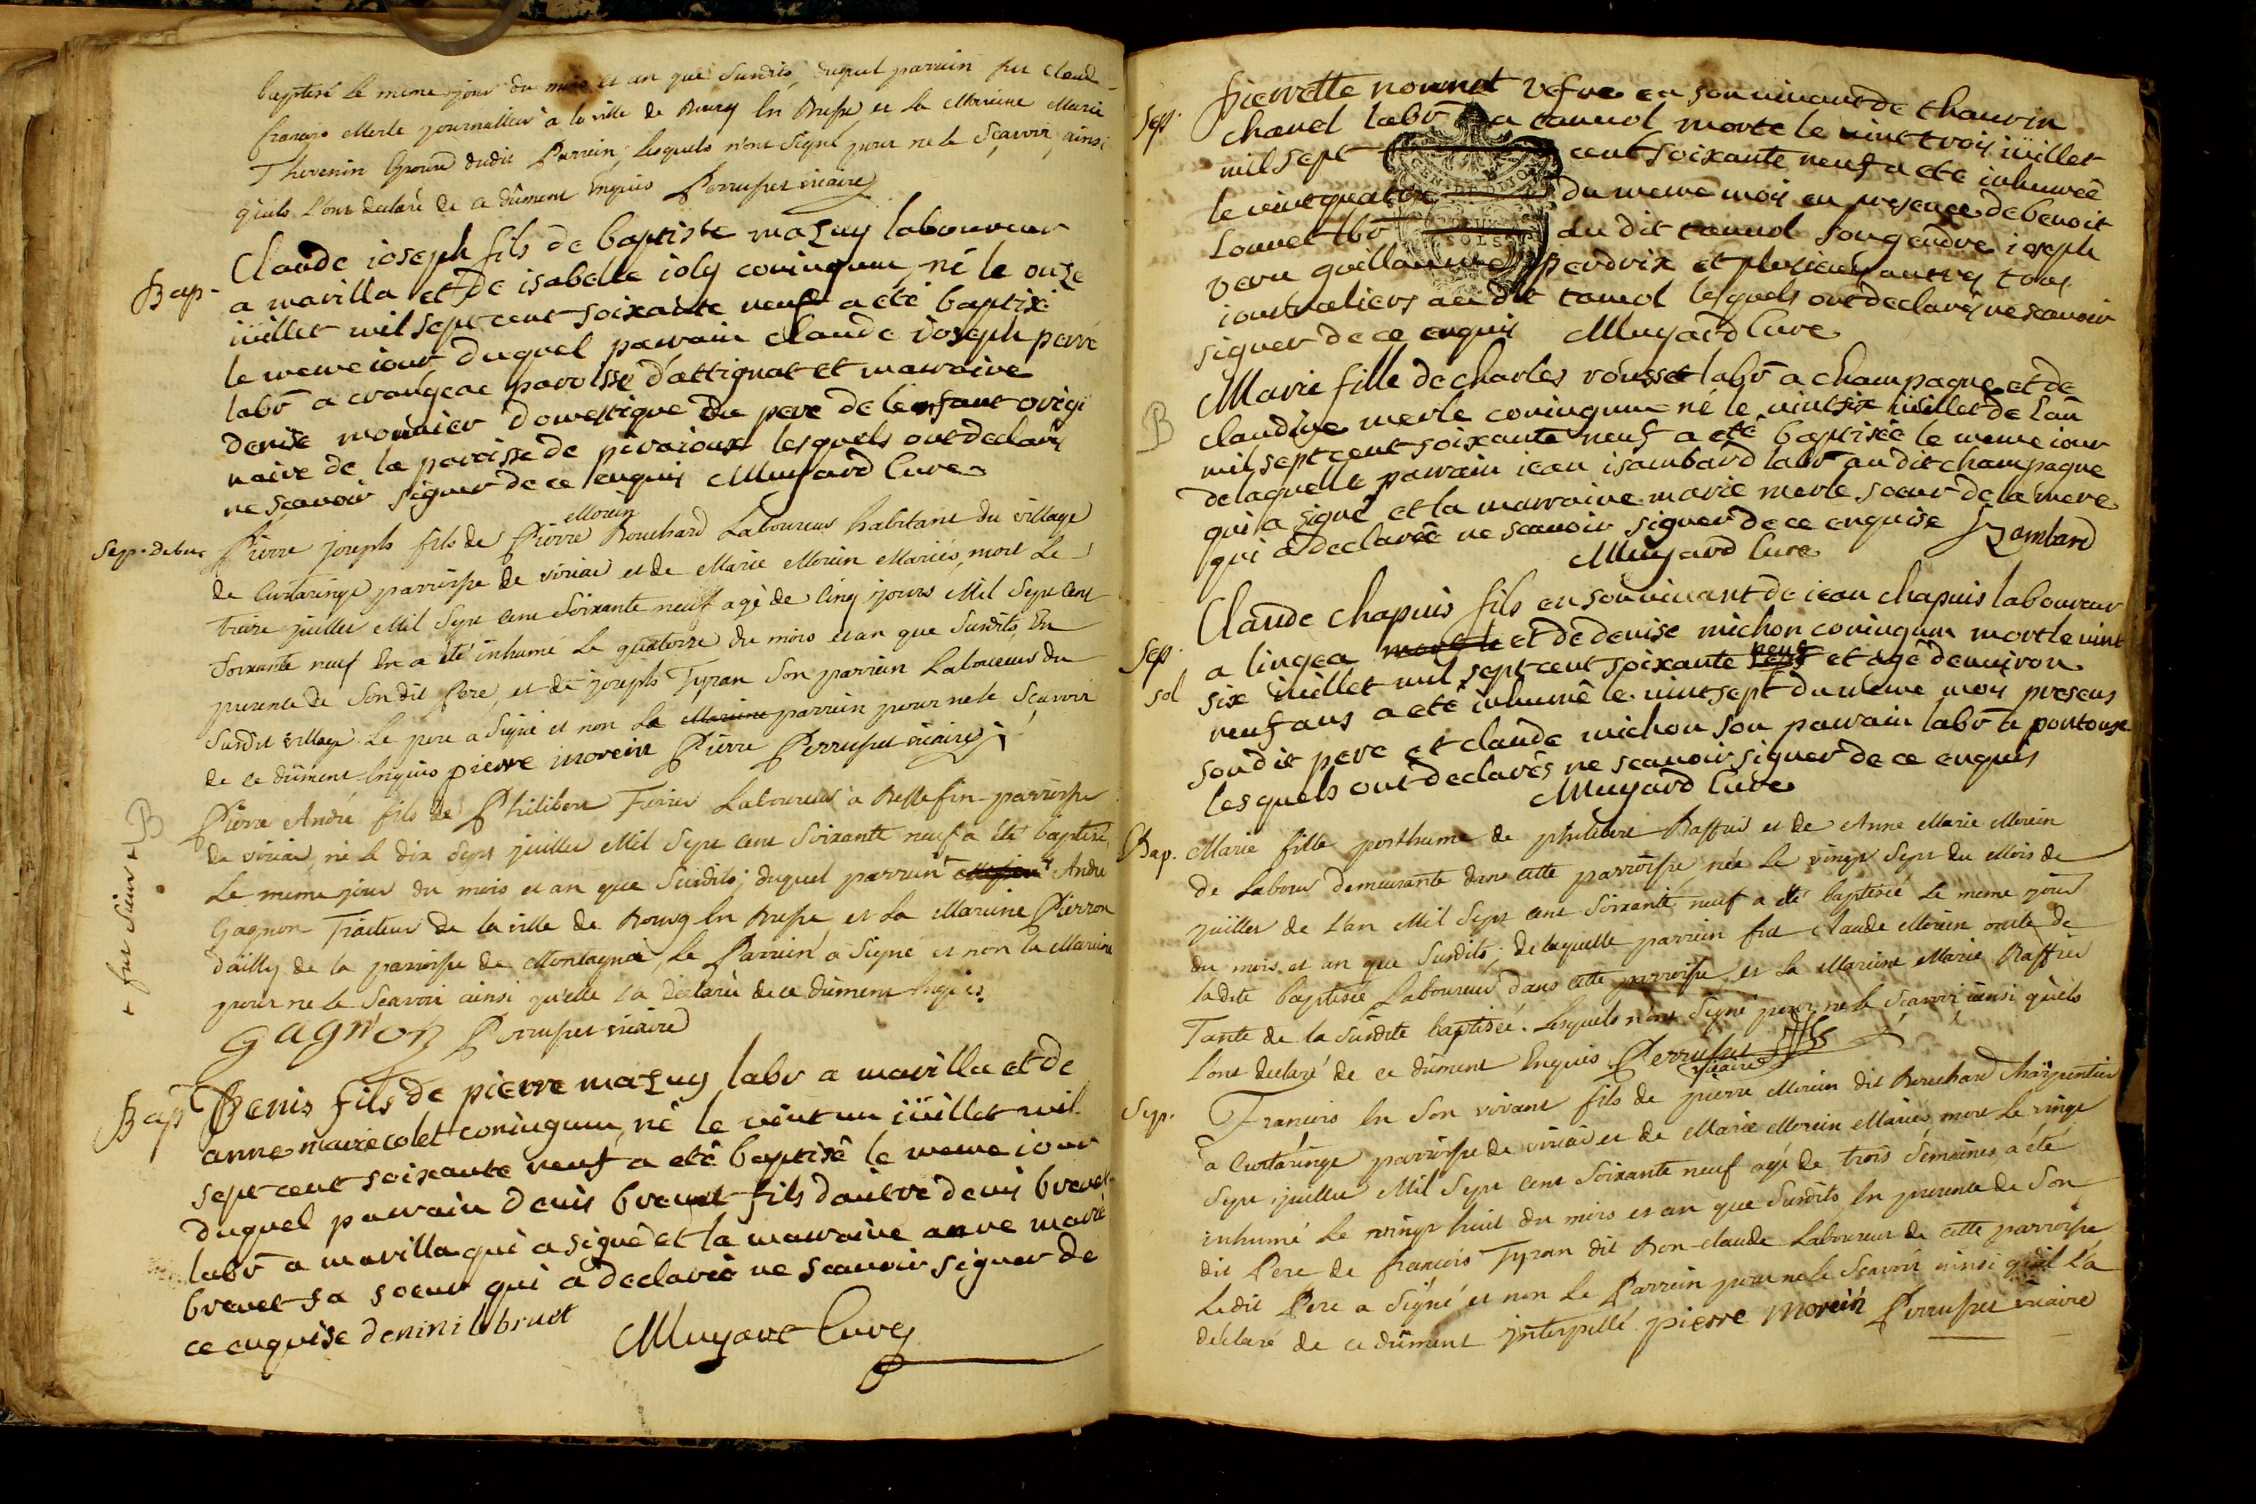 baptisé le meme jour du mois et an que Susdits, duquel parrain fut claud
françois Merle journallier à la ville de Bourg En Bresse et la Marrine Marie
Thevenin Epouse dudit Parrain, lesquels n'ont Signé pour ne le Sçavoir, ainsi
qu'ils l'ont declaré de ce dûment Enquis Perruset vicaire
Bap.
Claude ioseph fils de baptiste mazuy laboureur
a marilla et de isabelle ioly coniugum, né le onze
iüillet mil sept cent soixante neuf a été baptisé
le meme iour duquel parrain claude ioseph perré
labr a crangeac paroisse d'attignat et marraine
denise monnier domestique du pere de l'enfant origi
naire de la paroisse de piraioux lesquels ont declarés
ne scavoir signer de ce enquis Muyard Cure
Sep. de bu
Pierre joseph fils de Pierre Morein Bouchard Laboureur habitant du village
de Curtaringe parroisse de viriac et de Marie Morein Mariés, mort le
Treize juillet Mil Sept cent Soixante neuf agé de Cinq jours Mil Sept cent
Soixante neuf En a été inhumé le quatorze du mois et an que Susdits, En
presence de Son dit Pere, et de joseph Tyran Son parrain Laboureur du
Susdit village. Le pere a Signé et non La Marine parrein pour ne le Scavoir
de ce dûment Enquis pierre morein Pierre Perruset vicaire
B
+ fut Sieur +
Pierre André fils de Philibert Ferrier Laboureur a Bellefin parroisse
de viriac, né le dix Sept juillet Mil Sept cent Soixante neuf a été baptisé
Le meme jour du mois et an que Susdits; duquel parrain + André
Gagnon Traiteur de la ville de Bourg En Bresse et La Marrine Pierron
d'ailly de la parroisse de Montagna, Le Parrein a Signé et non la Marrine
pour ne le Scavoir ainsi qu'elle l'a declaré de ce dûment Enquis.
Gagnon Perruset vicaire
Bap
Denis fils de pierre mazuy labr a marilla et de
anne marie colet coniugum, né le vint un iüillet mil
sept cent soixante neuf a eté baptisé le meme iour
duquel parrain denis brevet fils d'autre denis brevet
labr a marilla qui a signé et la marraine anne marie
brevet sa soeur qui a declarée ne scavoir signer de
ce enquise deninis bruet
Muyard Cure
Sep.
Pierrette nounet vefve en son vivant de thaurin
chanel labr a tanuol morte le vint trois iüillet
mil sept cent soixante neuf a ete inhumée
le vint quatre du meme mois en presence de benoit
Louvet lbr du dit tanuol son gendre ioseph
veru guillaume perdrix et plusieurs autres tous
iournaliers au dit tanuol lesquels ont declarés ne scavoir
signer de ce enquis Muyard Cure
B
Marie fille de charles rousset labr a champagne et de
claudine merle coniugum né le vint six iüillet de l'an
mil sept cent soixante neuf a eté baptisée le meme iour
de laquelle parrain iean isambard labr au dit champagne
qui a signé et la marraine marie merle soeur de la mere
qui a declarée ne scavoir signer de ce enquise Izambard
Muyard Cure
Sep.
sol
Claude chapuis fils en son vivant de iean chapuis laboureur
a lingea mort le et de denise michon coniugum mort le vint
six iüillet mil sept cent soixante neuf et agé d'environ
neuf ans a eté inhumé le vint sept du meme mois presens
son dit pere et claude michon son parrain labr a pontoux
lesquels ont declarés ne scavoir signer de ce enquis
Muyard Cure
Bap.
Marie fille posthume de philibert Raffred et de Anne Marie Morein
de Labour demeurante dans cette parroisse née le vingt Sept du Mois de
juillet de l'an Mil Sept cent Soixante neuf a été baptisée le meme jour
du mois et an que Susdits, de laquelle parrein fut Claude Morein oncle de
ladite baptisée Laboureur dans cette parroisse, et la Marrine Marie Raffred
Tante de la Susdite baptisée. Lesquels n'ont Signé pour ne le Scavoir ainsi qu'ils
l'ont declaré de ce dûment Enquis Perruset
vicaire
Sep.
François En Son vivant fils de pierre Morein dit Bouchard Charpentier
à Curtaringe parroisse de viriac et de Marie Morein Mariés mort le vingt
Sept juillet Mil Sept cent Soixante neuf agé de trois Semaines, a été
inhumé le vingt huit du mois et an que Susdits, En presence de Son
dit Pere de françois Tyran dit Bon-claude Laboureur de cette parroisse
Ledit Pere a Signé et non Le Parrein pour ne le Scavoir ainsi qu'il l'a
déclaré de ce dûment interpellé pierre Morein Perruset vicaire